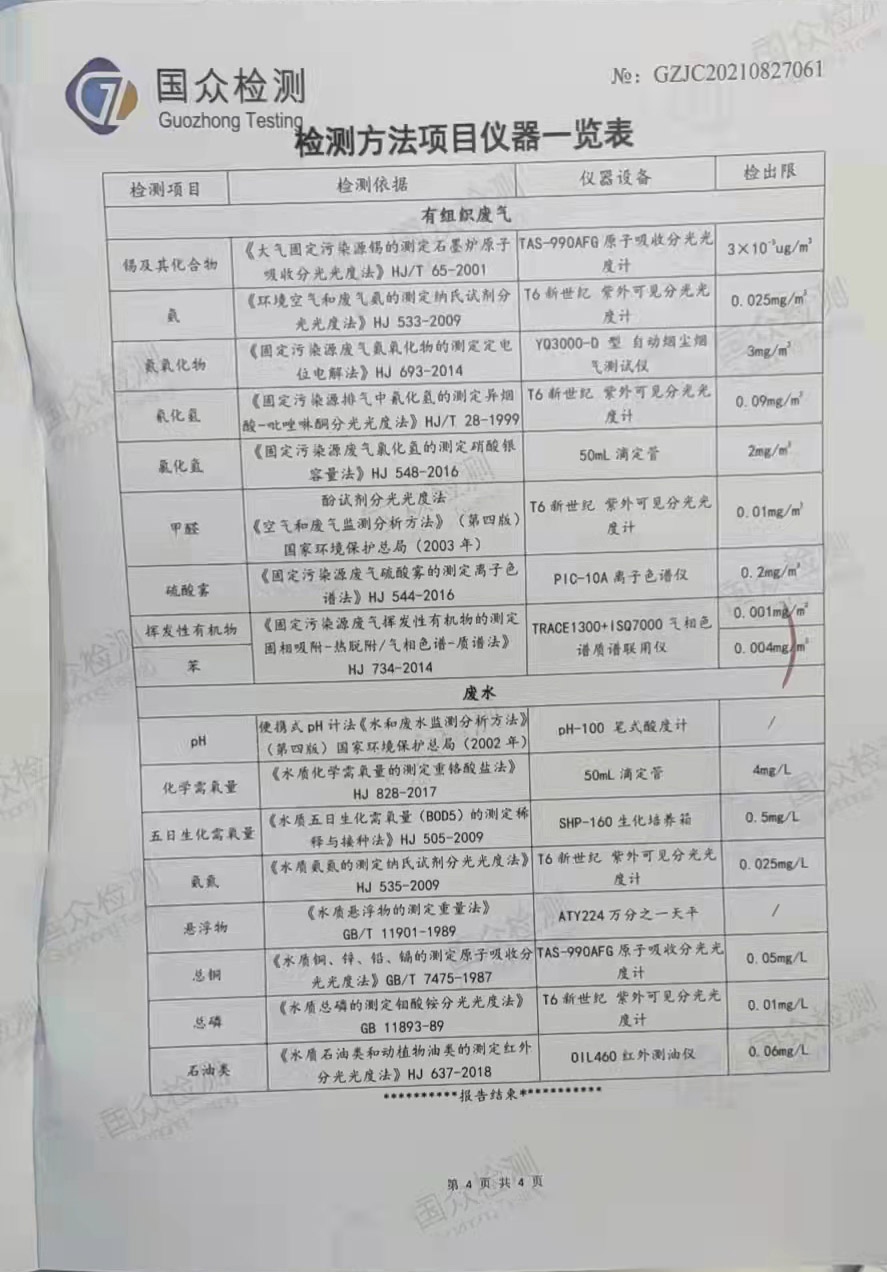 国众检测
Guozhong Testing
№: GZJC20210827061
检测方法项目仪器一览表
检测项目 检测依据 仪器设备 检出限
有组织废气
锡及其化合物 《大气固定污染源锡的测定石墨炉原子 TAS-990AFG 原子吸收分光光 3×10⁻³ug/m³
吸收分光光度法》HJ/T 65-2001 度计
氨 《环境空气和废气氨的测定纳氏试剂分 T6 新世纪 紫外可见分光光 0.025mg/m³
光光度法》HJ 533-2009 度计
氮氧化物 《固定污染源废气氮氧化物的测定定电 YQ3000-D 型 自动烟尘烟 3mg/m³
位电解法》HJ 693-2014 气测试仪
氰化氢 《固定污染源排气中氰化氢的测定异烟 T6 新世纪 紫外可见分光光 0.09mg/m³
酸-吡唑啉酮分光光度法》HJ/T 28-1999 度计
氯化氢 《固定污染源废气氯化氢的测定硝酸银 50mL 滴定管 2mg/m³
容量法》HJ 548-2016
甲醛 酚试剂分光光度法 T6 新世纪 紫外可见分光光 0.01mg/m³
《空气和废气监测分析方法》（第四版） 度计
国家环境保护总局（2003 年）
硫酸雾 《固定污染源废气硫酸雾的测定离子色 PIC-10A 离子色谱仪 0.2mg/m³
谱法》HJ 544-2016
挥发性有机物 《固定污染源废气挥发性有机物的测定 TRACE1300+ISQ7000 气相色 0.001mg/m³
苯 固相吸附-热脱附/气相色谱-质谱法》 谱质谱联用仪 0.004mg/m³
HJ 734-2014
废水
pH 便携式 pH 计法《水和废水监测分析方法》 pH-100 笔式酸度计 /
（第四版）国家环境保护总局（2002 年）
化学需氧量 《水质化学需氧量的测定重铬酸盐法》 50mL 滴定管 4mg/L
HJ 828-2017
五日生化需氧量 《水质五日生化需氧量（BOD5）的测定稀 SHP-160 生化培养箱 0.5mg/L
释与接种法》HJ 505-2009
氨氮 《水质氨氮的测定纳氏试剂分光光度法》 T6 新世纪 紫外可见分光光 0.025mg/L
HJ 535-2009 度计
悬浮物 《水质悬浮物的测定重量法》 ATY224 万分之一天平 /
GB/T 11901-1989
总铜 《水质铜、锌、铅、镉的测定原子吸收分 TAS-990AFG 原子吸收分光光 0.05mg/L
光光度法》GB/T 7475-1987 度计
总磷 《水质总磷的测定钼酸铵分光光度法》 T6 新世纪 紫外可见分光光 0.01mg/L
GB 11893-89 度计
石油类 《水质石油类和动植物油类的测定红外 OIL460 红外测油仪 0.06mg/L
分光光度法》HJ 637-2018
**********报告结束**********
第 4 页 共 4 页